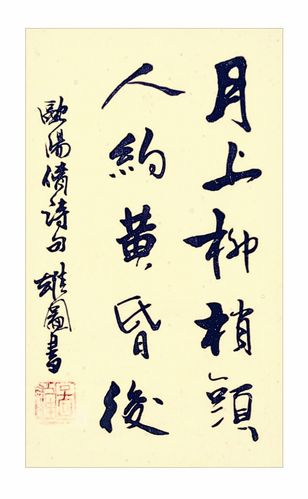 月上柳梢頭
人約黄昏後
歐陽脩詩句 雄圖書